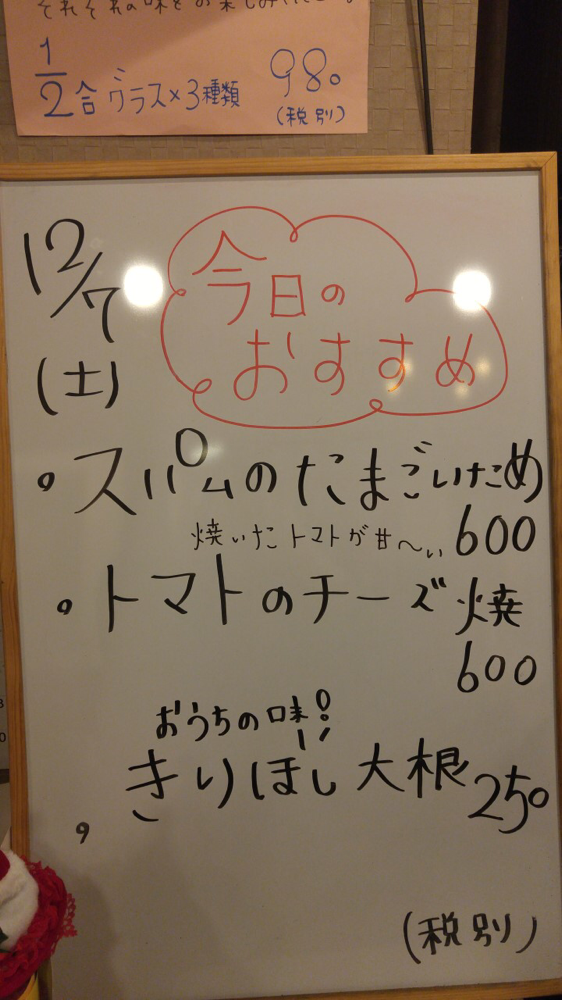 それぞれの味をお楽しみください。
1/2合グラス×3種類 980
(税別)
12/7
(土)
今日の
おすすめ
。スパムのたまごいため
焼いたトマトが甘〜い 600
。トマトのチーズ焼
600
おうちの味!!
きりほし大根 250
(税別)